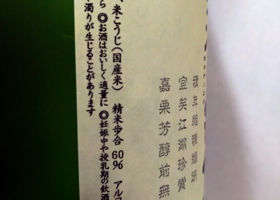 宜矣江湖珍賞
嘉栗芳醇前無
米こうじ(国産米) 精米歩合 60% アル
ら ◎お酒はおいしく適量に ◎妊娠中や授乳期の飲酒
濁りが生じることがあります